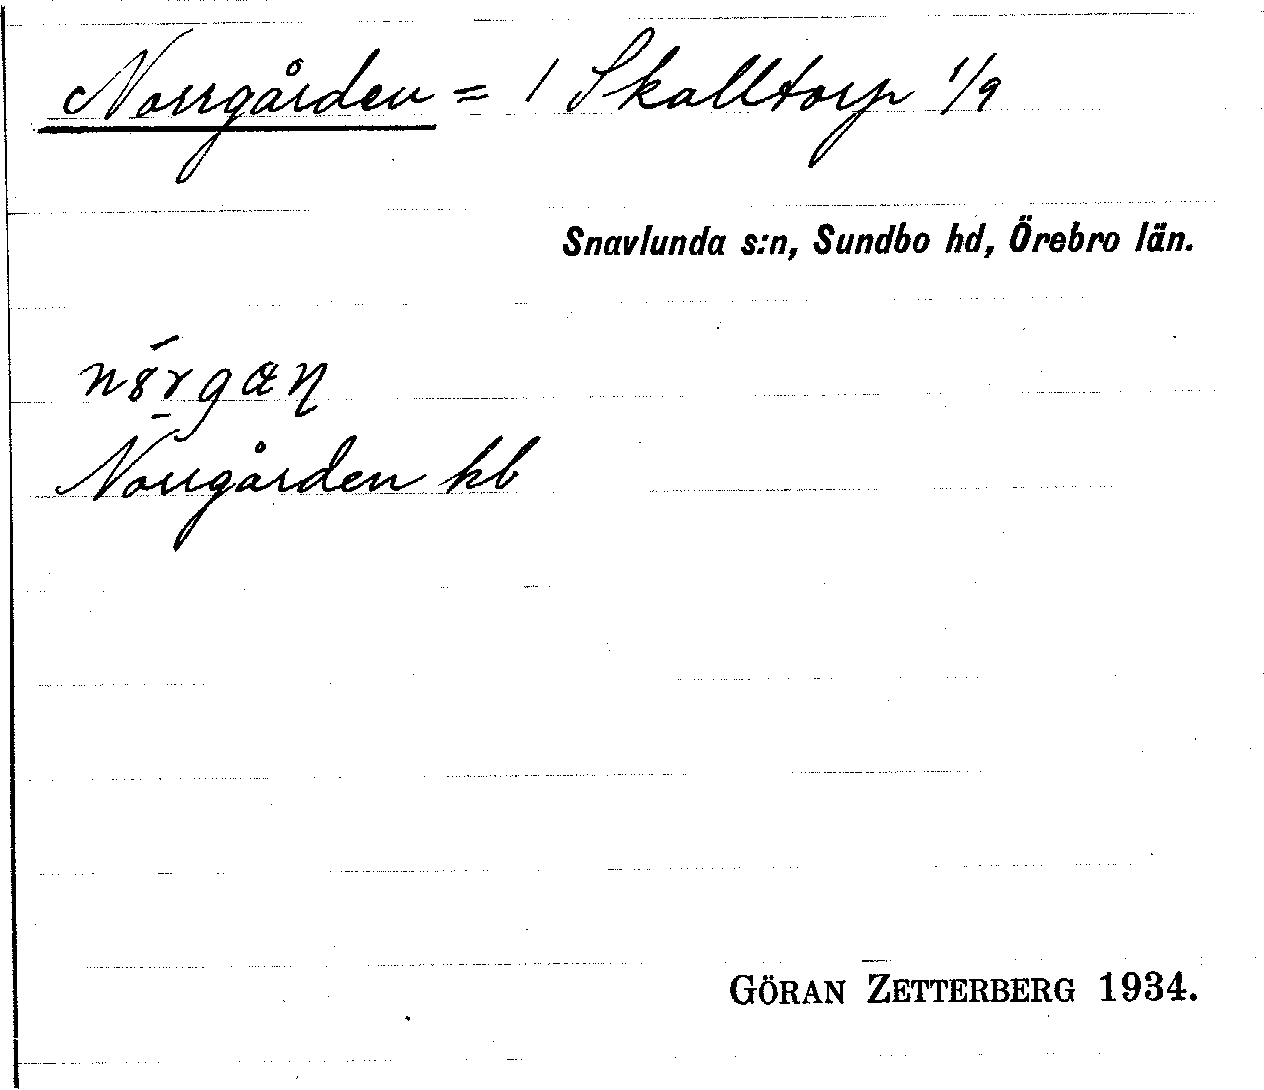 Norrgården = 1 Skalltorp 1/9
Snavlunda s:n, Sundbo hd, Örebro län.
Norrgården kb
GÖRAN ZETTERBERG 1934.